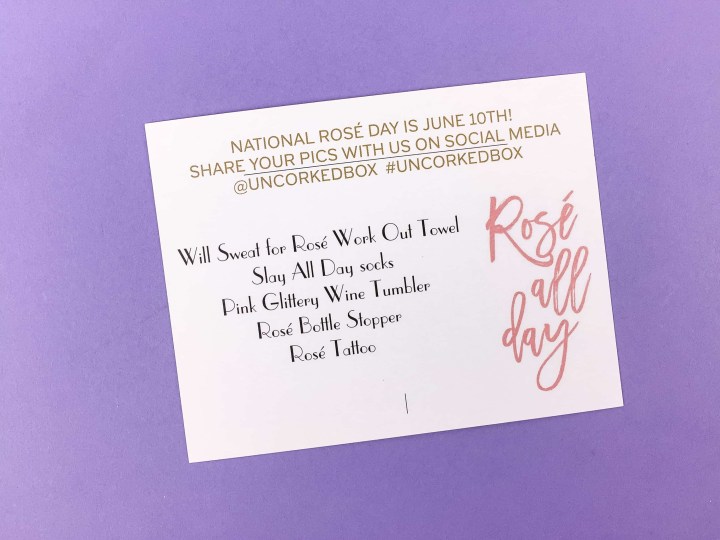 NATIONAL ROSÉ DAY IS JUNE 10TH!
SHARE YOUR PICS WITH US ON SOCIAL MEDIA
@UNCORKEDBOX #UNCORKEDBOX
Will Sweat for Rosé Work Out Towel
Slay All Day socks
Pink Glittery Wine Tumbler
Rosé Bottle Stopper
Rosé Tattoo
Rosé
all
day